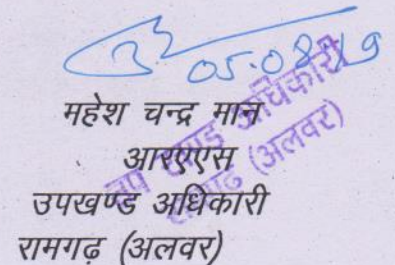 05.08.19
महेश चन्द्र मान
आरएएस
उपखण्ड अधिकारी
रामगढ़ (अलवर)
उप खण्ड अधिकारी
रामगढ (अलवर)